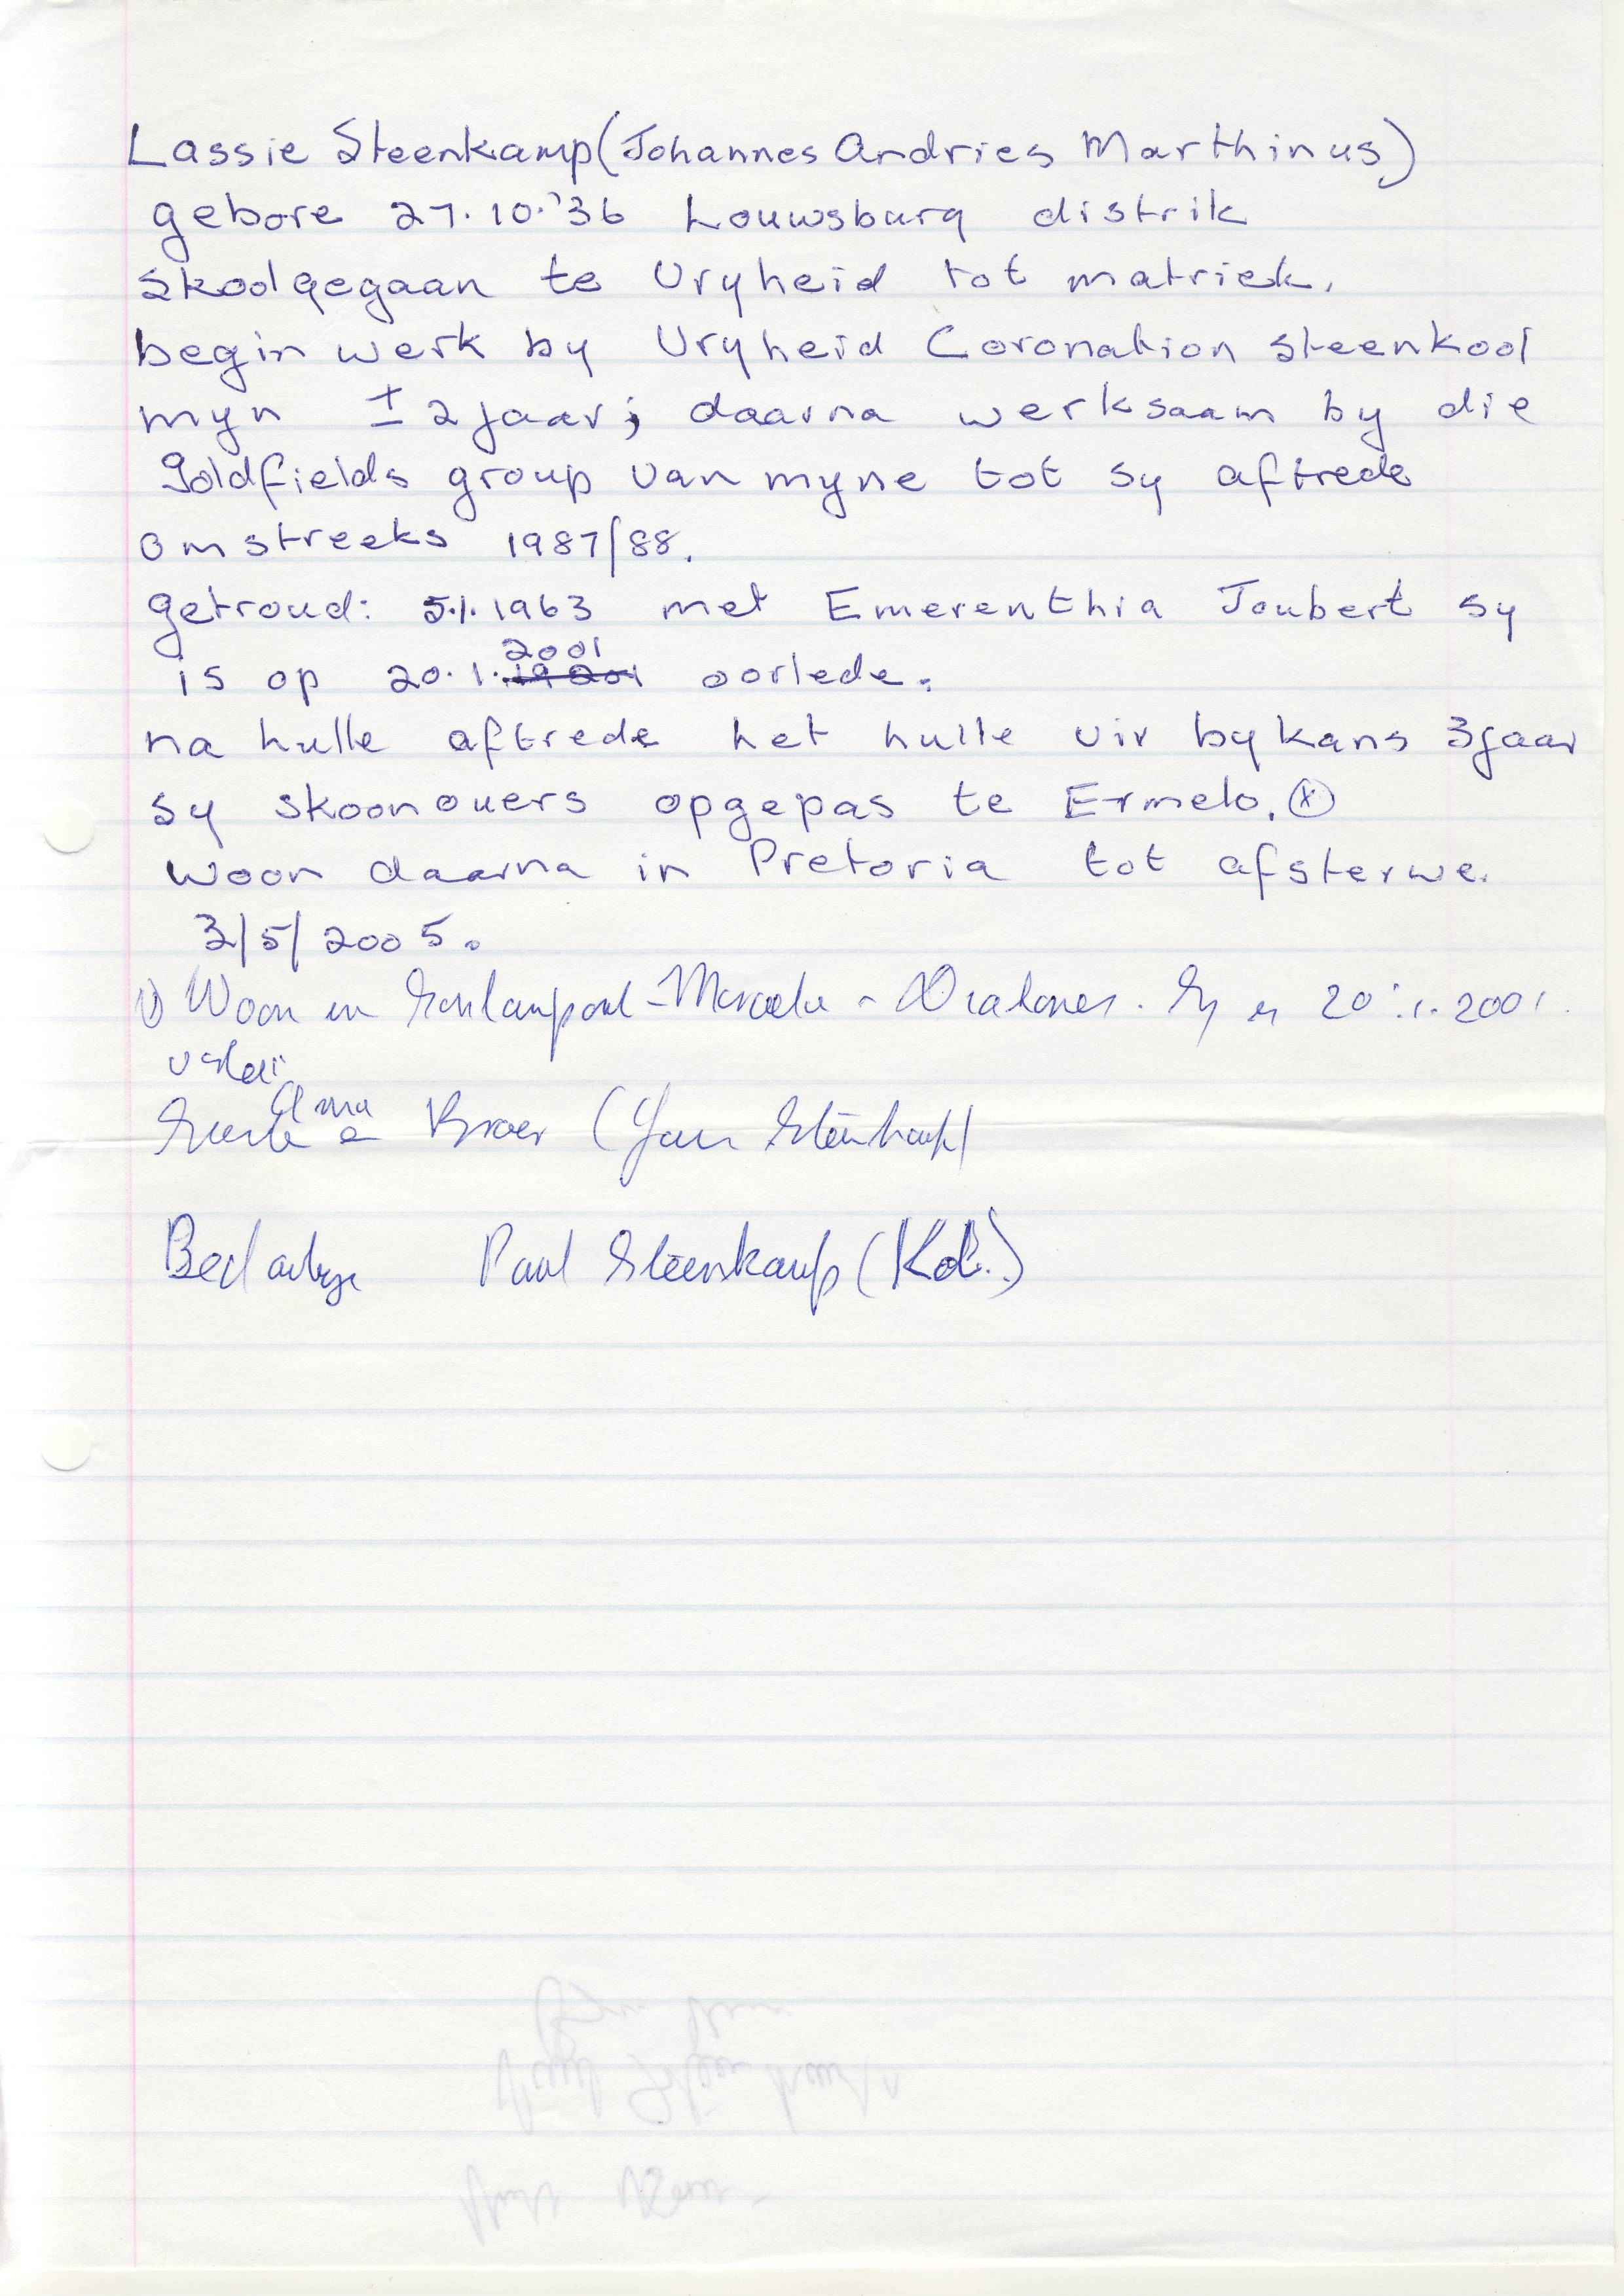 Lassie Steenkamp (Johannes Andries Marthinus)
gebore 27.10.'36 Louwsburg distrik
skoolgegaan te Vryheid tot matriek.
begin werk by Vryheid Coronation steenkool
myn ± 2 jaar; daarna werksaam by die
Goldfields group van myne tot sy aftrede
omstreeks 1987/88.
getroud: 5.1.1963 met Emerenthia Joubert sy
2001
is op 20.1. oorlede.
na hulle aftrede het hulle vir bykans 3 jaar
sy skoonouers opgepas te Ermelo. (x)
woon daarna in Pretoria tot afsterwe.
3/5/2005.
Woon in 20.1.2001
Broer (Jan Steenkamp)
Paul Steenkamp (Kol.)